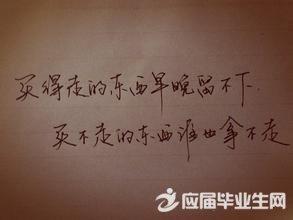 买得走的东西早晚留不下.
买不走的东西谁也拿不走
应届毕业生网
YJBYS.COM